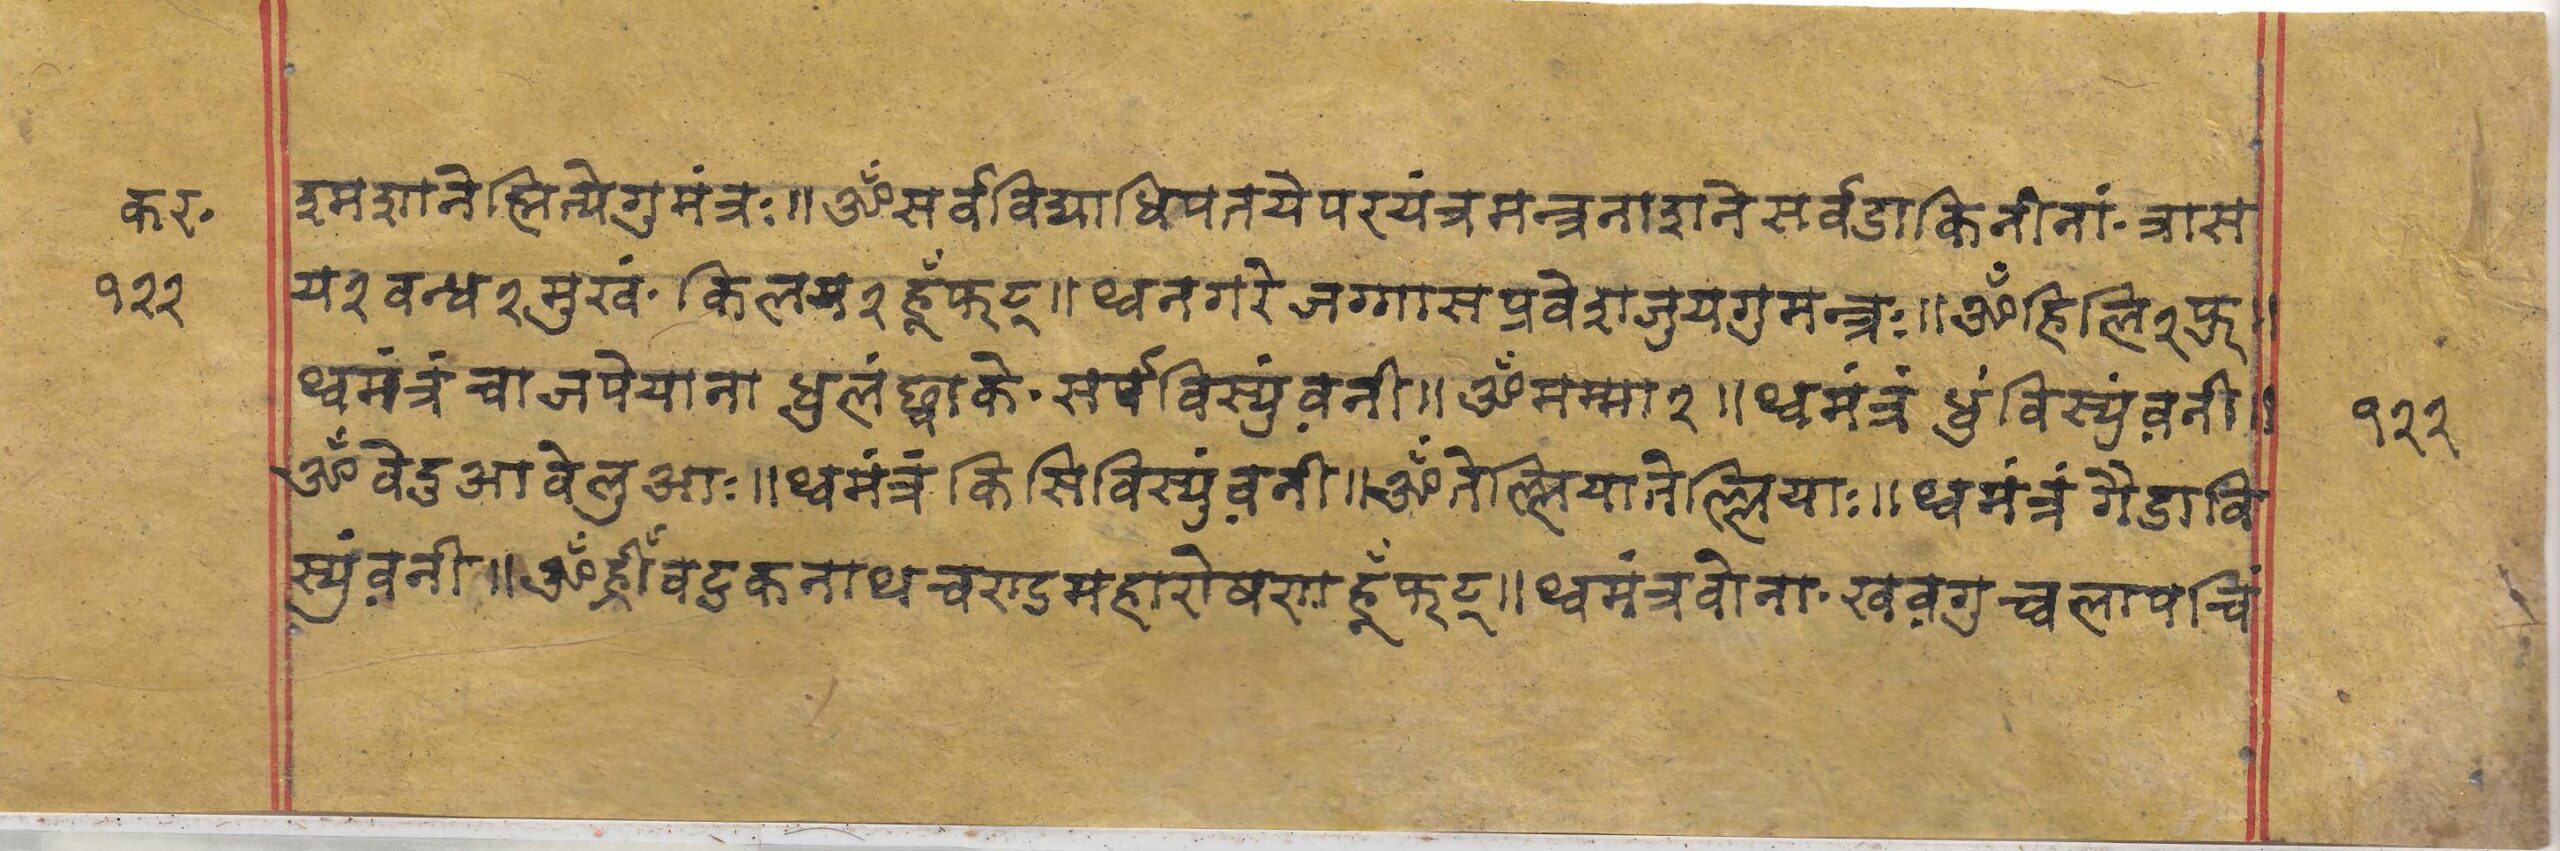 कर॰ श्मशानेह्लित्येगुमंत्रः॥ॐसर्वविद्याधिपतयेपरयंत्रमन्त्रनाशनेसर्वडाकिनीनां॰त्रास
१२२ य२वन्ध२मुखं॰किलय२हूँफट्॥थ्वनगरेजग्गासप्रवेशजुयगुमन्त्रः॥ॐहिलि२फ्र्॥
थ्वमंत्रंचाजपेयानाधुलंछ्वाके॰सर्पविस्युंव़नी॥ॐमम्मा२॥थ्वमंत्रंधुंविस्युंव़नी॥ १२२
ॐवेडुआवेलुआः॥थ्वमंत्रंकिसिविस्युंव़नी॥ॐतेल्लियातेल्लियाः॥थ्वमंत्रंगैडावि
स्युंव़नी॥ॐह्रीँवटुकनाथचण्डमहारोषणहूँफट्॥थ्वमंत्रवोना॰खव़गुच्वलापचिं